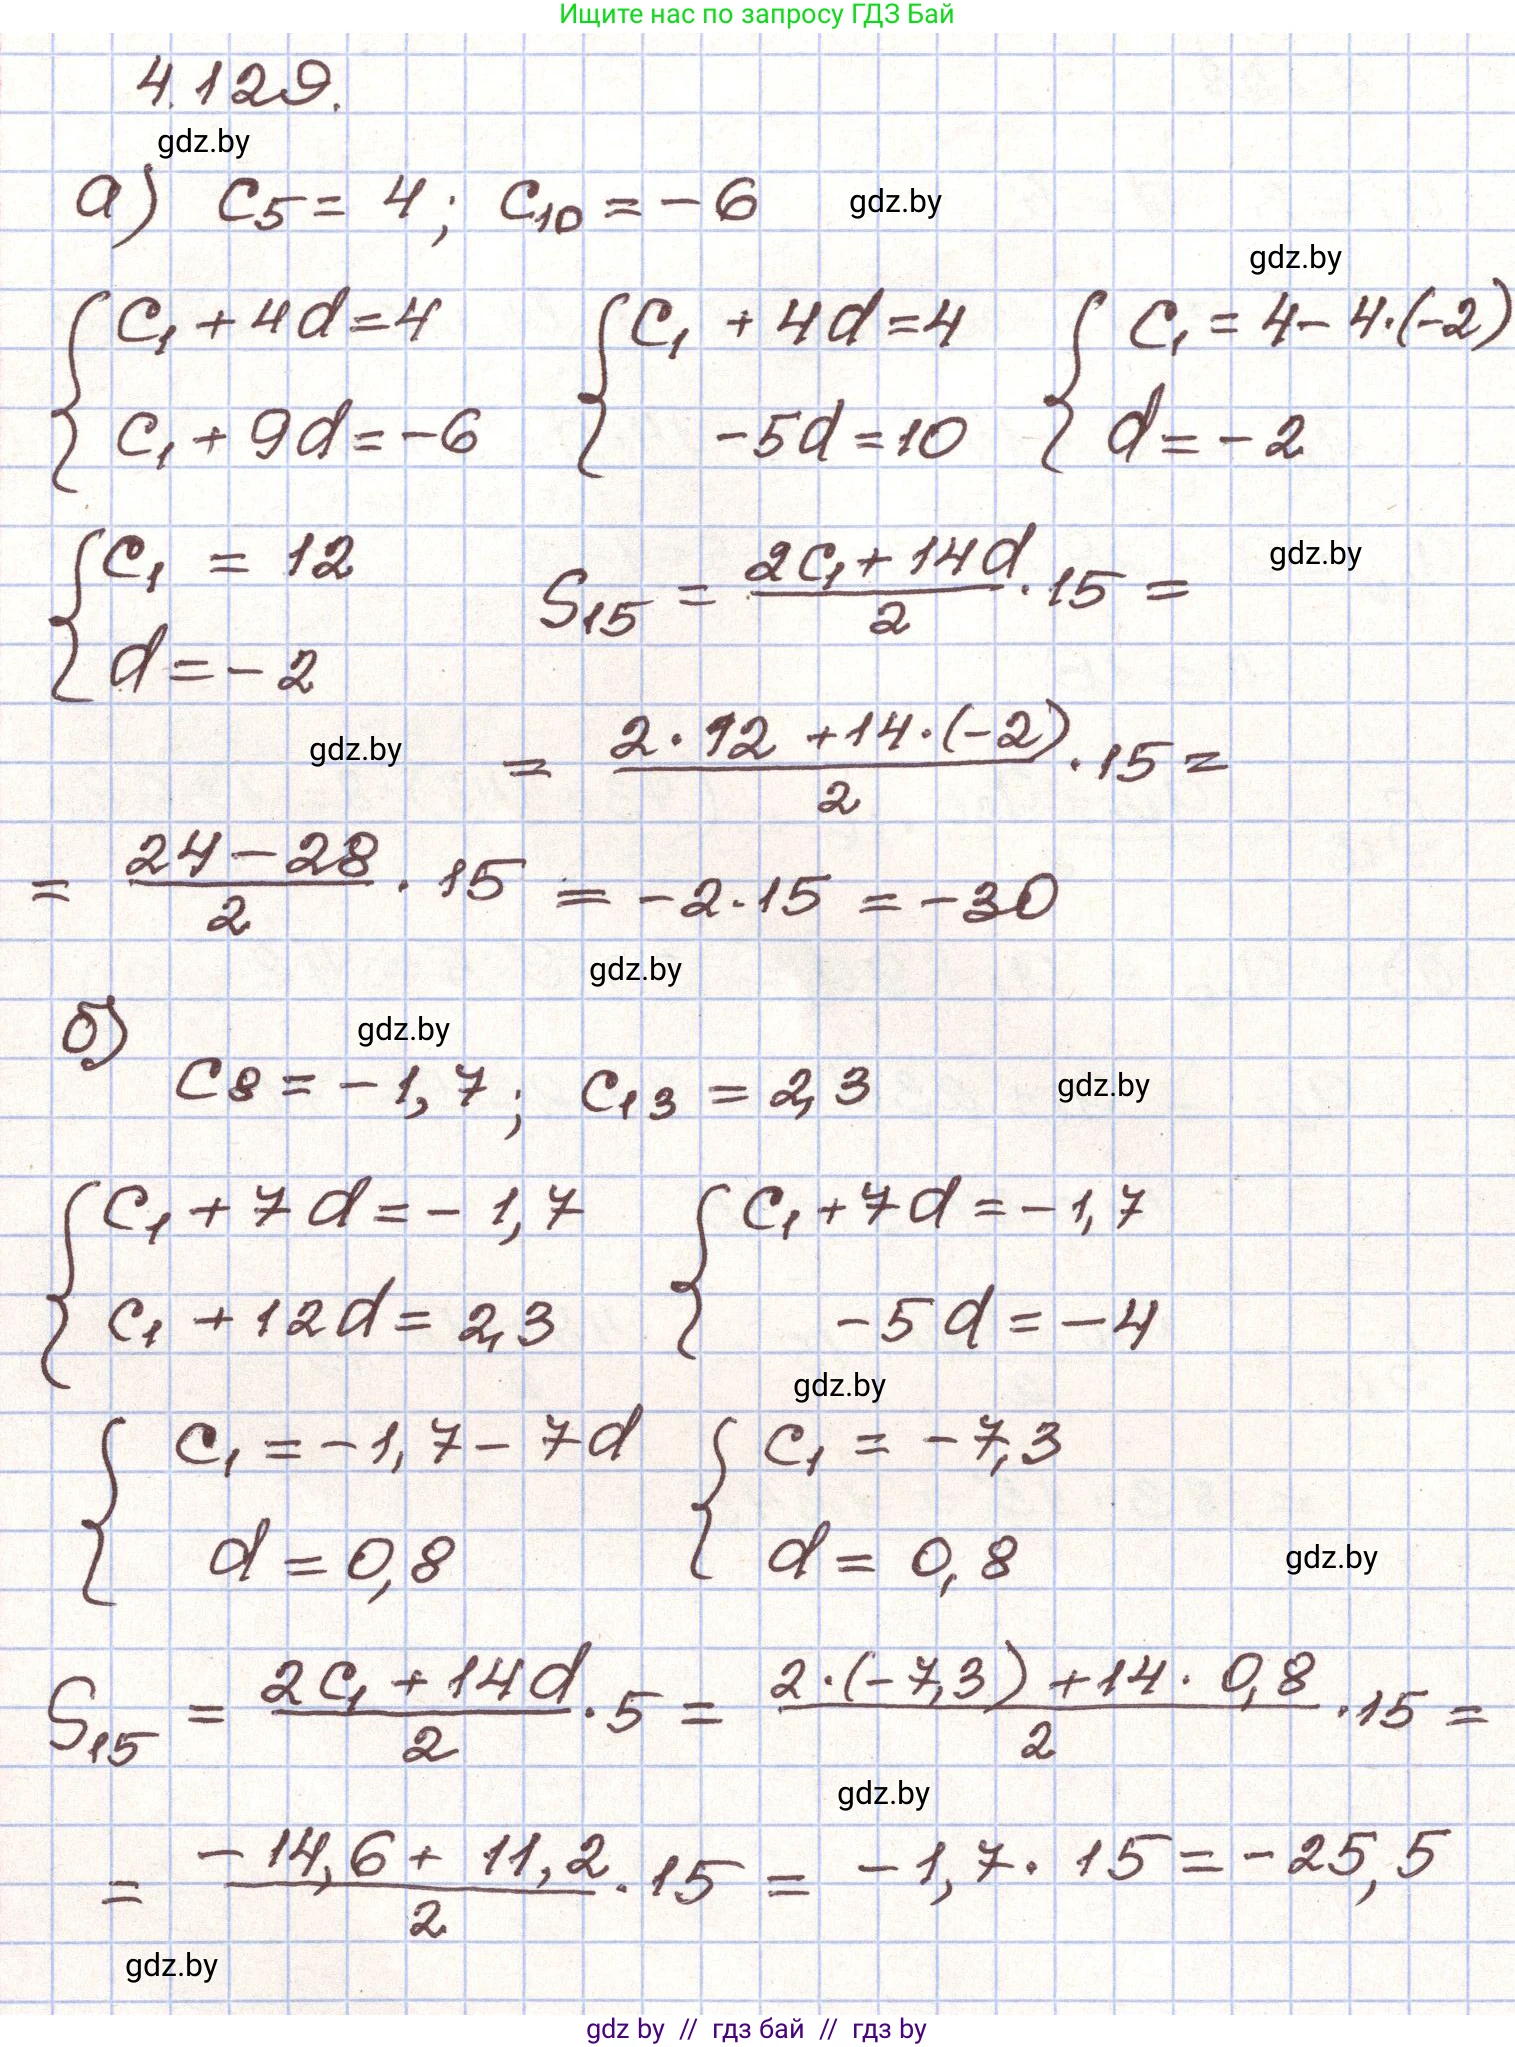 Ищите нас по запросу ГДЗ Бай
4.129.
gdz.by
а) c₅ = 4; c₁₀ = -6 gdz.by
gdz.by
{ c₁ + 4d = 4 { c₁ + 4d = 4 { c₁ = 4 - 4·(-2)
c₁ + 9d = -6 -5d = 10 d = -2
{ c₁ = 12 S₁₅ = (2c₁ + 14d)/2 · 15 = gdz.by
d = -2
gdz.by = (2·12 + 14·(-2))/2 · 15 =
= (24 - 28)/2 · 15 = -2·15 = -30
gdz.by
б) gdz.by
c8 = -1,7; c₁₃ = 2,3 gdz.by
{ c₁ + 7d = -1,7 { c₁ + 7d = -1,7
c₁ + 12d = 2,3 -5d = -4
gdz.by
{ c₁ = -1,7 - 7d { c₁ = -7,3
d = 0,8 d = 0,8 gdz.by
S₁₅ = (2c₁ + 14d)/2 · 5 = (2·(-7,3) + 14·0,8)/2 · 15 =
gdz.by
= (-14,6 + 11,2)/2 · 15 = -1,7·15 = -25,5
gdz.by
gdz by // гдз бай // гдз by